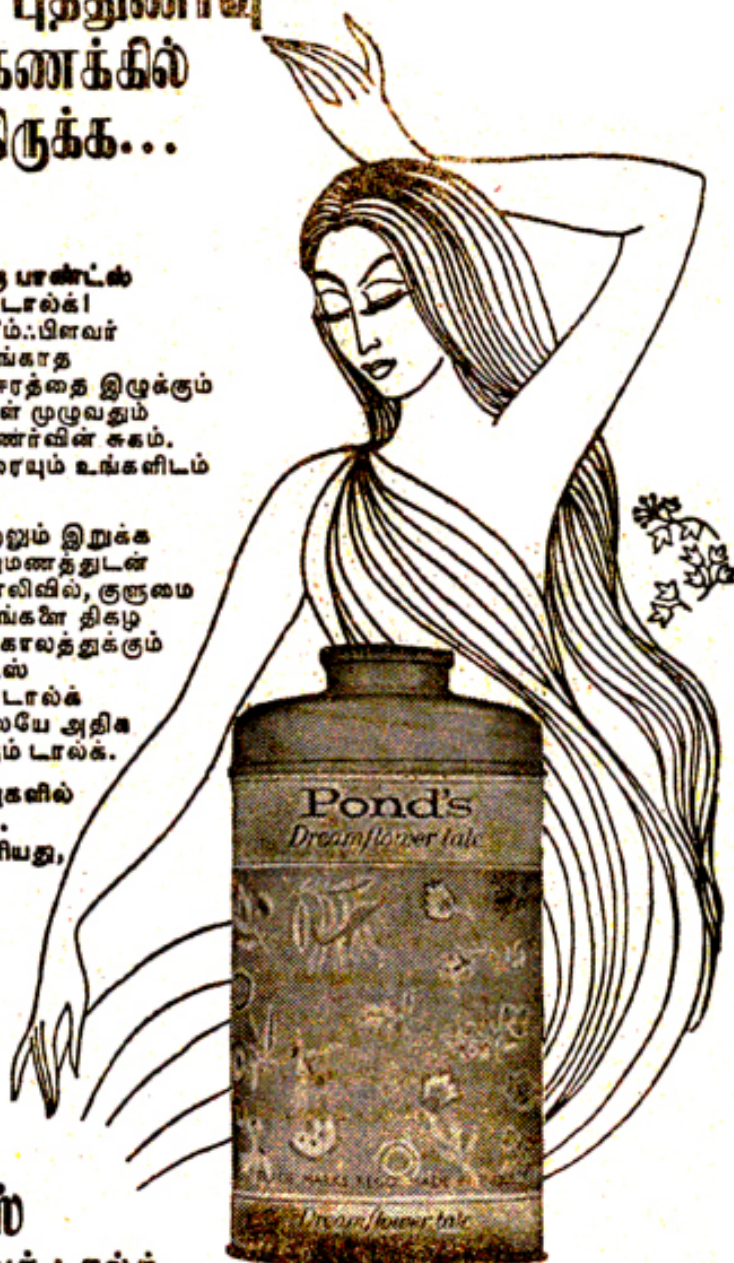 புத்துணர்வு
கணக்கில்
ருக்க...
பாண்ட்ஸ்
டால்க்!
ம்ஃபிளவர்
ங்காத
ரத்தை இழுக்கும்
ள் முழுவதும்
ணர்வின் சுகம்.
ரையும் உங்களிடம்
லும் இறுக்க
மணத்துடன்
ாலிவில், குளுமை
ங்களை திகழ
காலத்துக்கும்
ஸ்
டால்க்
லயே அதிக
ம் டால்க்.
களில்
ரியது,
Pond's
Dreamflower talc
TRADE MARKS REGD. MADE IN
Dreamflower talc
ஸ்